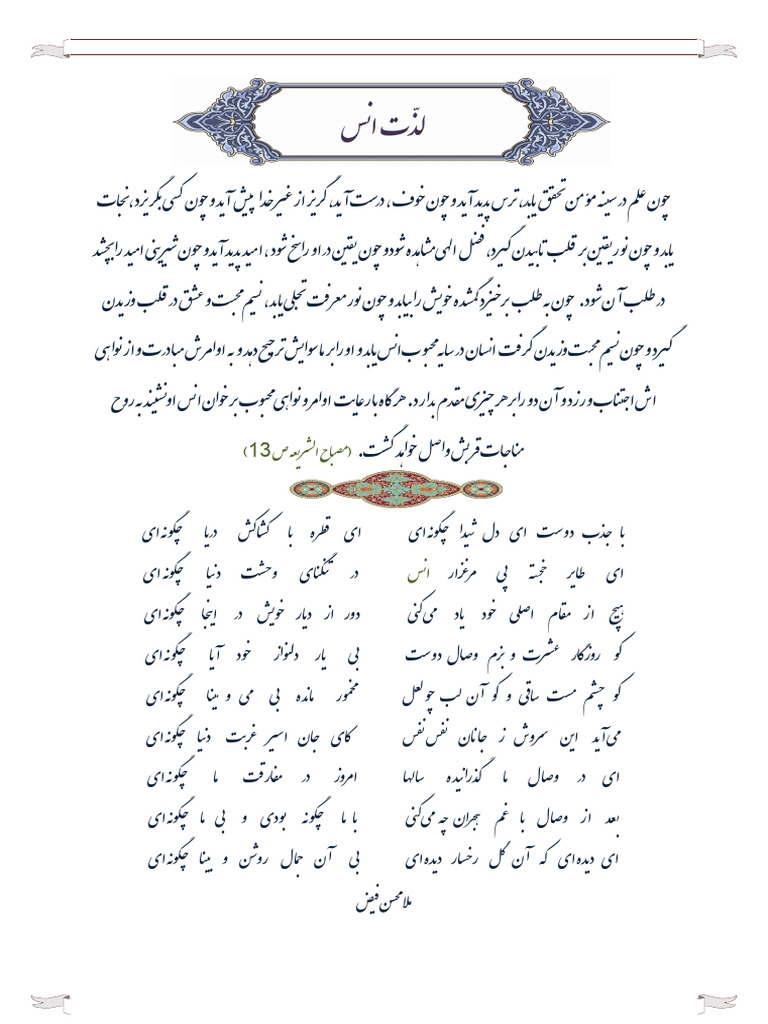 لذّت انس
چون علم در سینه مؤمن تحقق یابد، ترس پدید آید و چون خوف، درست آید، گریز از غیر خدا پیش آید و چون کسی بگریزد، نجات
یابد و چون نور یقین بر قلب تابیدن گیرد، فضل الهی مشاهده شود و چون یقین در او راسخ شود، امید پدید آید و چون شیرینی امید را بچشد
در طلب آن شود. چون به طلب برخیزد گمشده خویش را بیابد و چون نور معرفت تجلی یابد، نسیم محبت و عشق در قلب وزیدن
گیرد و چون نسیم محبت وزیدن گرفت انسان در سایه محبوب انس یابد و او را بر ماسوایش ترجیح دهد و به اوامرش مبادرت و از نواهی
اش اجتناب ورزد و آن دو را بر هر چیزی مقدم بدارد. هرگاه با رعایت اوامر و نواهی محبوب بر خوان انس او نشیند به روح
مناجات قربش واصل خواهد گشت. (مصباح الشریعه ص 13)
با جذب دوست ای دل شیدا چگونه‌ای ای قطره با کشاکش دریا چگونه‌ای
ای طایر خجسته پی مرغزار انس در تنگنای وحشت دنیا چگونه‌ای
هیچ از مقام اصلی خود یاد می‌کنی دور از دیار خویش در اینجا چگونه‌ای
کو روزگار عشرت و بزم وصال دوست بی یار دلنواز خود آیا چگونه‌ای
کو چشم مست ساقی و کو آن لب چو لعل مخمور مانده بی می و مینا چگونه‌ای
می‌آید این سروش ز جانان نفس نفس کای جان اسیر غربت دنیا چگونه‌ای
ای در وصال ما گذرانیده سالها امروز در مفارقت ما چگونه‌ای
بعد از وصال با غم هجران چه می‌کنی با ما چگونه بودی و بی ما چگونه‌ای
ای دیده‌ای که آن گل رخسار دیده‌ای بی آن جمال روشن و بینا چگونه‌ای
ملا محسن فیض